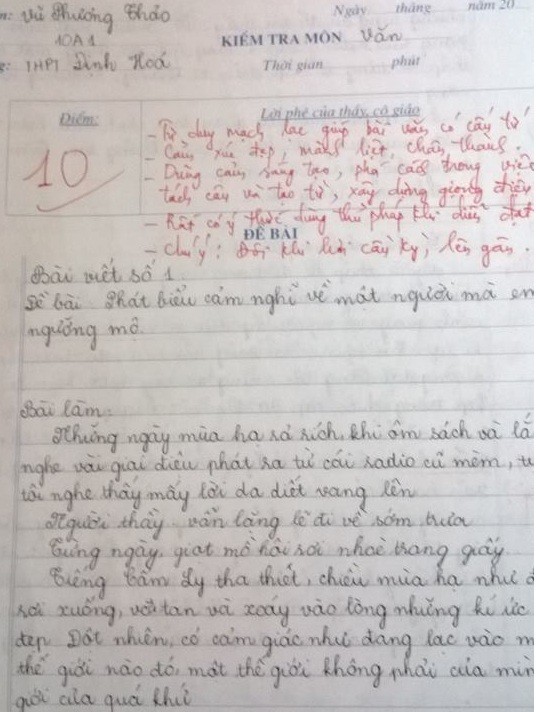 n: Vũ Phương Thảo
Ngày tháng năm 20
10A1
KIỂM TRA MÔN Văn
g: THPT Định Hoá
Thời gian phút
Điểm:
Lời phê của thầy, cô giáo
10
- Tư duy mạch lạc giúp bài văn có cấu tứ
- Cảm xúc đẹp, mãnh liệt, chân thành.
- Dũng cảm, sáng tạo, phá cách trong việc
tách câu và tạo từ, xây dựng giọng điệu
- Rất có ý thức dùng thủ pháp khi diễn đạt
ĐỀ BÀI
- Chú ý: Đôi khi hơi cầu kỳ, lên gân.
Bài viết số 1.
Đề bài: Phát biểu cảm nghĩ về một người mà em
ngưỡng mộ.
Bài làm:
Những ngày mùa hạ rả rích, khi ôm sách và lắ
nghe vài giai điệu phát ra từ cái radio cũ mèm, t
tôi nghe thấy mấy lời da diết vang lên
Người thầy vẫn lặng lẽ đi về sớm trưa
Từng ngày, giọt mồ hôi rơi nhoè trang giấy
Tiếng Cẩm Ly tha thiết, chiều mùa hạ như
rơi xuống, vỡ tan và xoáy vào lòng những kí ức
đẹp. Đột nhiên, có cảm giác như đang lạc vào m
thế giới nào đó, một thế giới không phải của mìn
giới của quá khứ